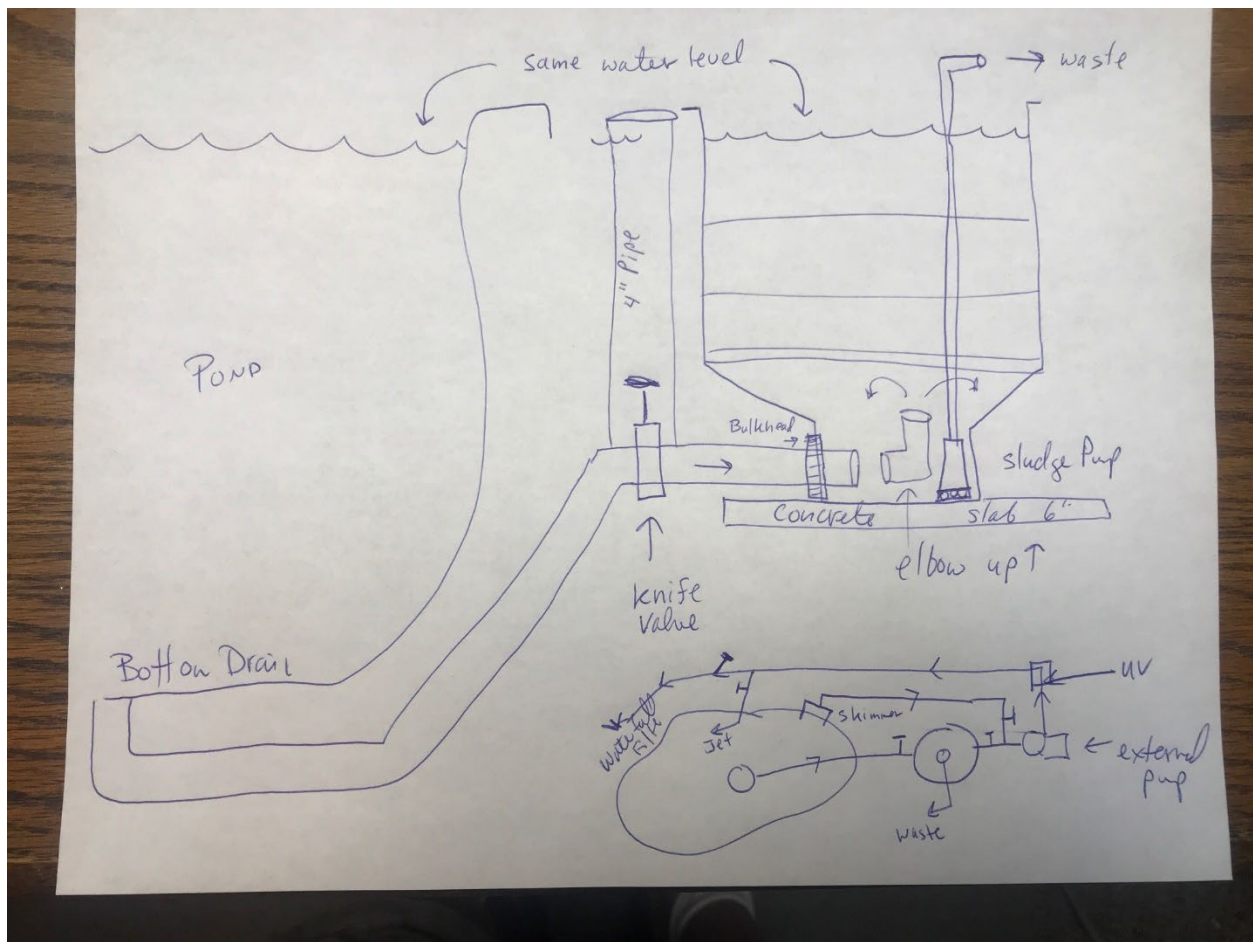 same water level
→ waste
4" Pipe
POND
Bulkhead
sludge Pump
Concrete slab 6"
elbow up ↑
knife
valve
Bottom Drain
UV
skimmer
Jet
Waterfall
external
pump
waste